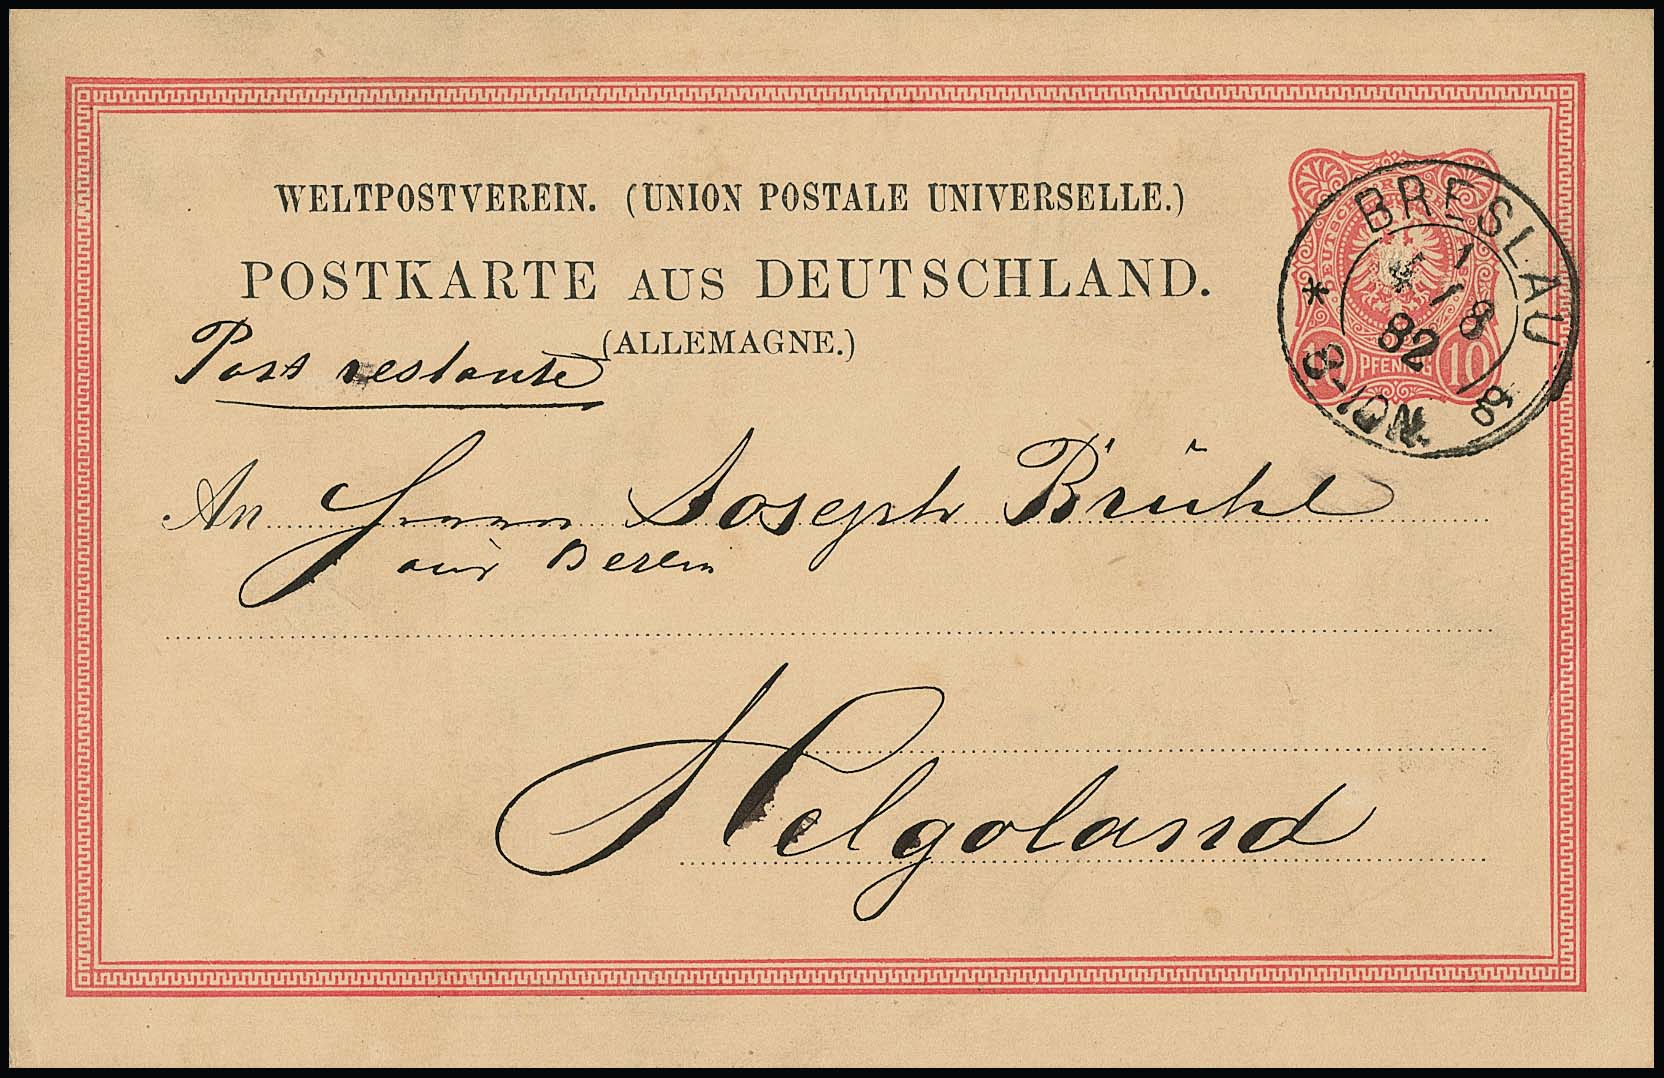 WELTPOSTVEREIN. (UNION POSTALE UNIVERSELLE.)
POSTKARTE AUS DEUTSCHLAND.
(ALLEMAGNE.)
Post restante
An Herrn Joseph Brühl
aus Berlin
Helgoland
BRESLAU
1
8
82
8-9N.
10 PFENNIG 10